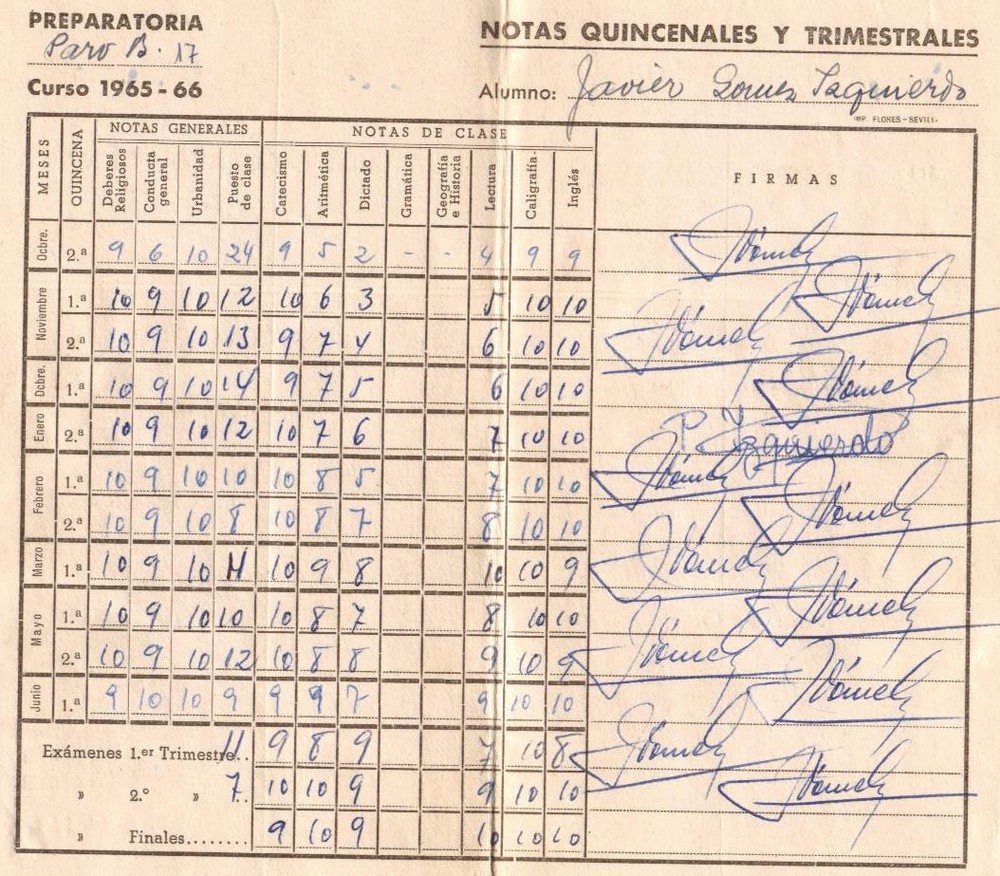 PREPARATORIA
NOTAS QUINCENALES Y TRIMESTRALES
Parv B. 17
Curso 1965-66
Alumno: Javier Gomez Izquierdo
IMP. FLORES-SEVILLA
MESES QUINCENA NOTAS GENERALES NOTAS DE CLASE FIRMAS
Deberes Religiosos Conducta general Urbanidad Puesto de clase Catecismo Aritmética Dictado Gramática Geografía e Historia Lectura Caligrafía Inglés
Ocbre. 2.ª 9 6 10 24 9 5 2 - - 4 9 9
Noviembre 1.ª 10 9 10 12 10 6 3 5 10 10
2.ª 10 9 10 13 9 7 4 6 10 10
Dcbre. 1.ª 10 9 10 14 9 7 5 6 10 10
Enero 2.ª 10 9 10 12 10 7 6 7 10 10 P. Izquierdo
Febrero 1.ª 10 9 10 10 10 8 5 7 10 10
2.ª 10 9 10 8 10 8 7 8 10 10
Marzo 1.ª 10 9 10 11 10 9 8 10 10 9
Mayo 1.ª 10 9 10 10 10 8 7 8 10 10
2.ª 10 9 10 12 10 8 8 9 10 9
Junio 1.ª 9 10 10 9 9 9 7 9 10 10
Exámenes 1.er Trimestre.. 11 9 8 9 7 10 8
» 2.º » 7.. 10 10 9 9 10 10
» Finales........ 9 10 9 10 10 10